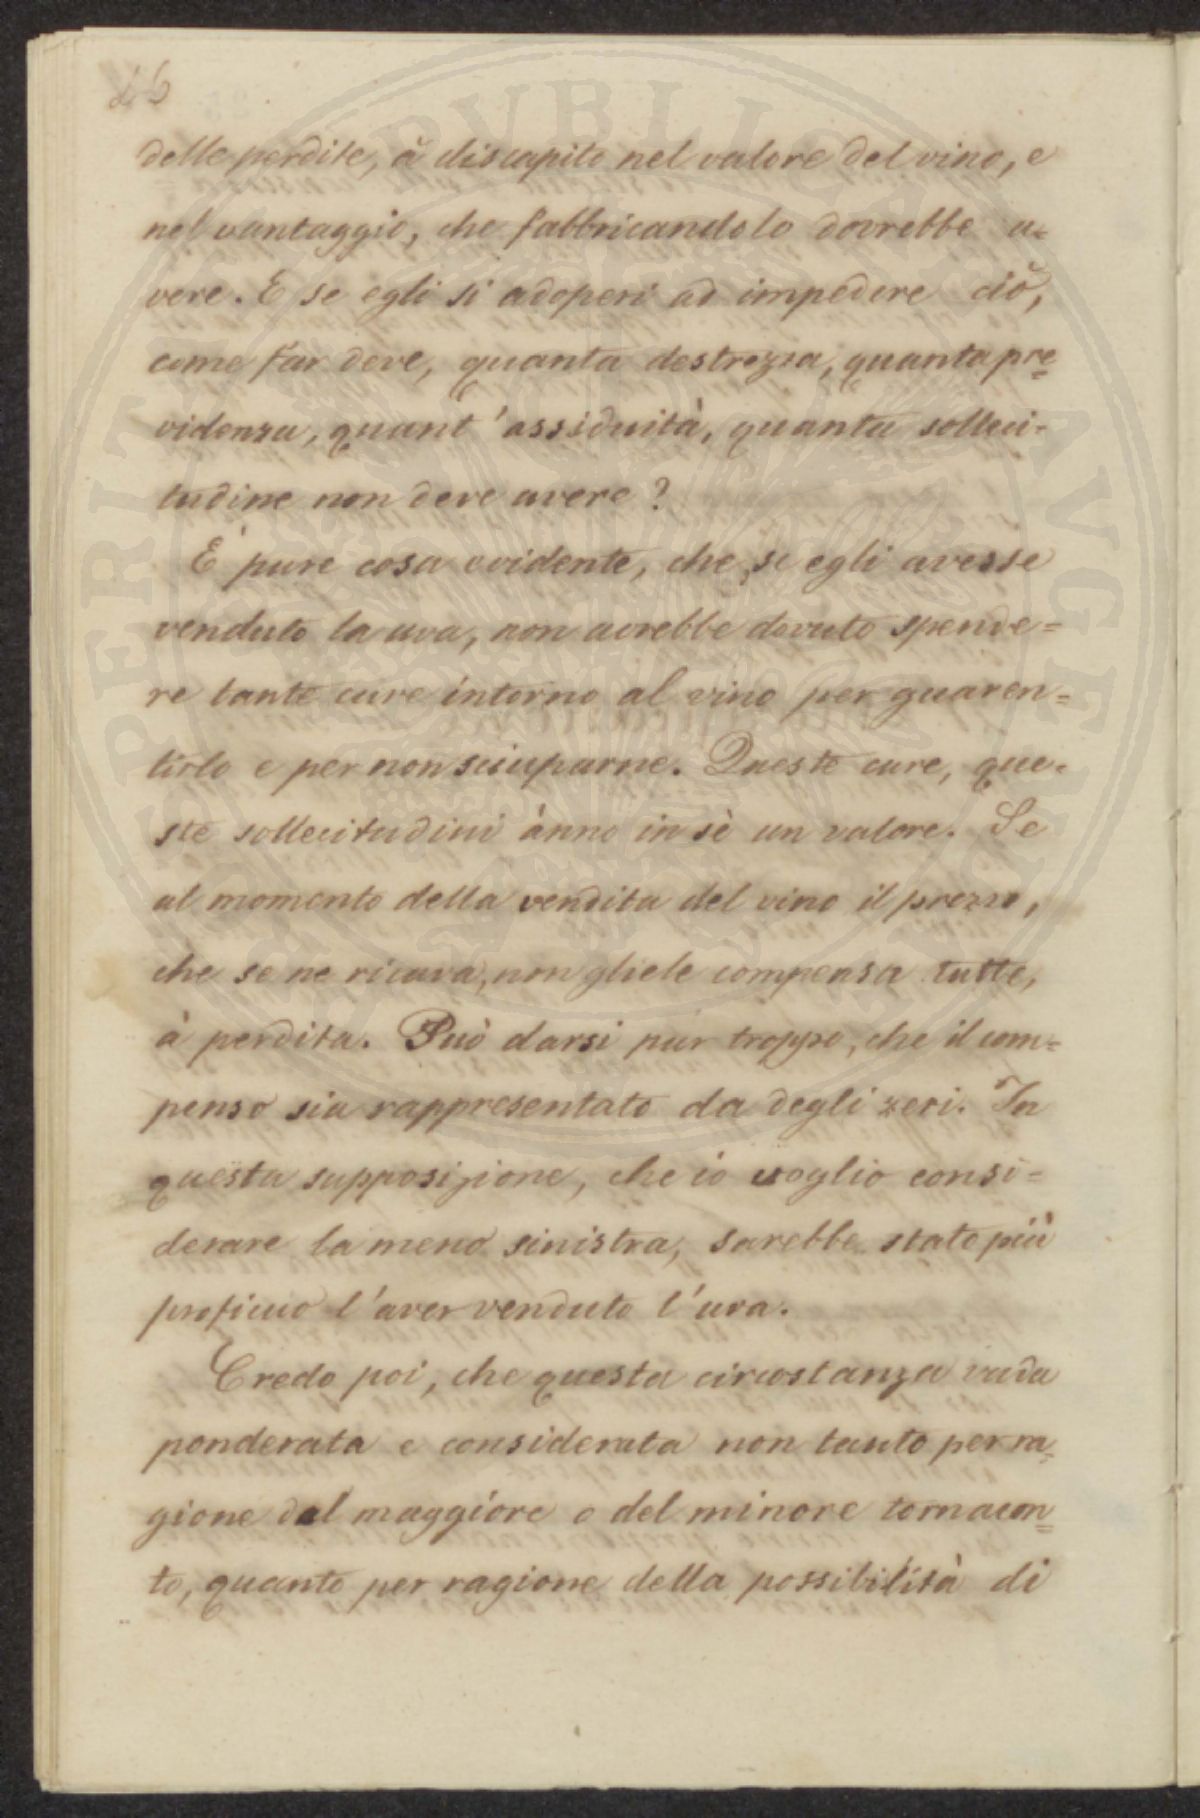 46
delle perdite, à discapito nel valore del vino, e
nel vantaggio, che fabbricandolo dovrebbe a-
vere. E se egli si adoperi ad impedire ciò,
come far deve, quanta destrezza, quanta pre-
videnza, quant'assiduità, quanta solleci-
tudine non deve avere?
È pure cosa evidente, che, se egli avesse
venduto la uva, non avrebbe dovuto spende=
re tante cure intorno al vino per guaren=
tirlo e per non sciuparne. Queste cure, que-
ste sollecitudini ànno in sè un valore. Se
al momento della vendita del vino il prezzo,
che se ne ricava, non gliele compensa tutte,
à perdita. Può darsi pur troppo, che il com=
penso sia rappresentato da degli zeri. In
questa supposizione, che io voglio consi=
derare la meno sinistra, sarebbe stato più
proficuo l'aver venduto l'uva.
Credo poi, che questa circostanza vada
ponderata e considerata non tanto per ra-
gione del maggiore o del minore tornacon=
to, quanto per ragione della possibilità di